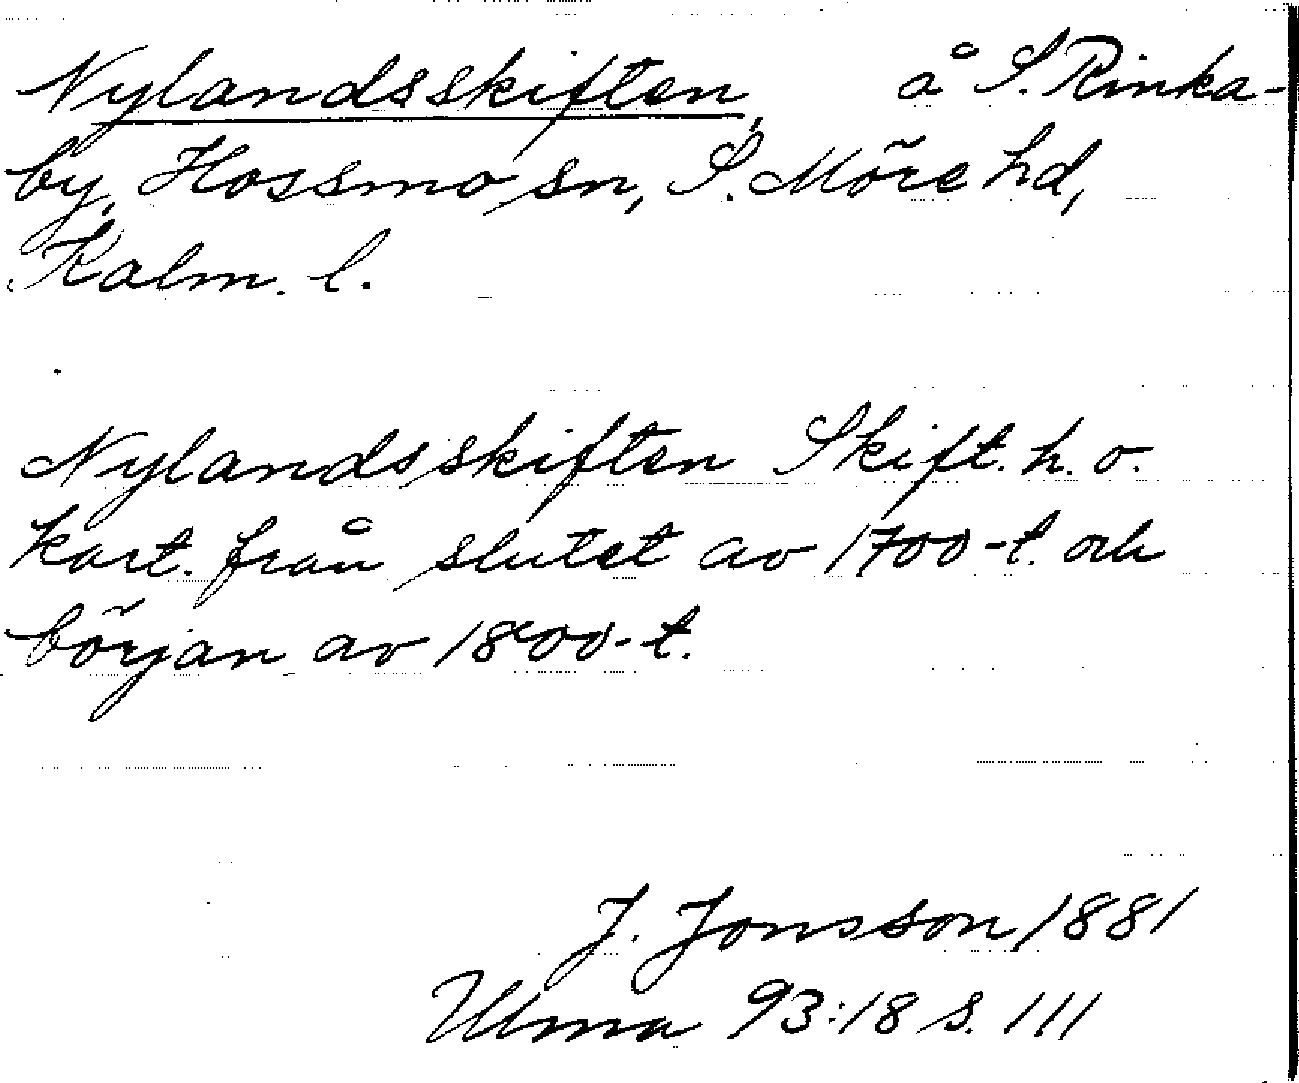 Nylandsskiften, å S. Rinka-
by, Hossmo sn, S. Möre hd,
Kalm. l.
Nylandsskiften Skift. h. o.
kart. från slutet av 1700-t. och
början av 1800-t.
J. Jonsson 1881
Ulma 93:18 s. 111